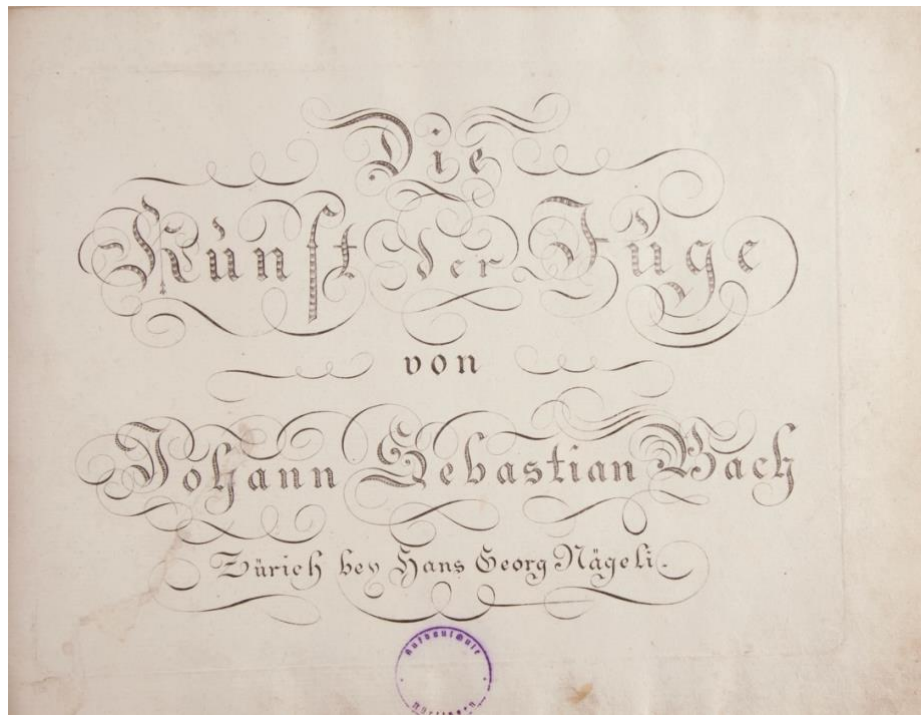 Die
Kunst der Fuge
von
Johann Sebastian Bach
Zürich bey Hans Georg Nägeli.